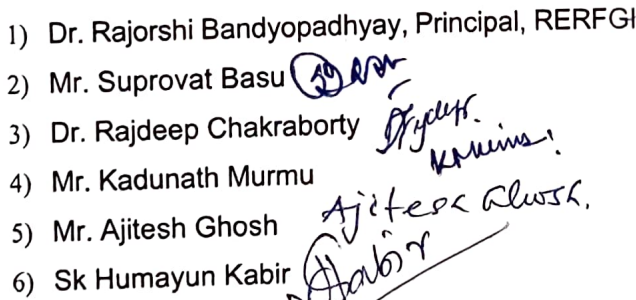 1) Dr. Rajorshi Bandyopadhyay, Principal, RERFGI
2) Mr. Suprovat Basu
3) Dr. Rajdeep Chakraborty
4) Mr. Kadunath Murmu
5) Mr. Ajitesh Ghosh Ajitesh Ghosh.
6) Sk Humayun Kabir Kabir